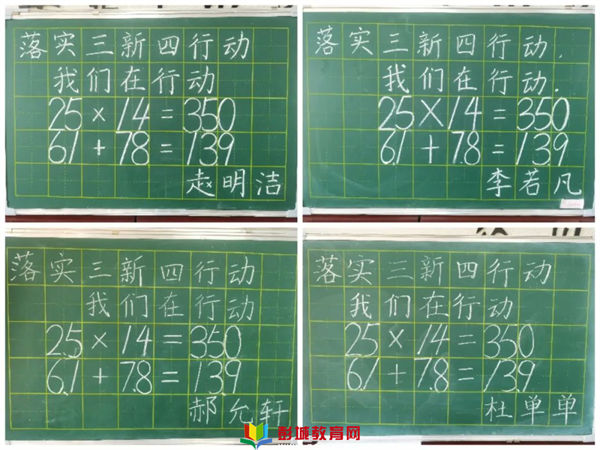 落实三新四行动
我们在行动
25×14=350
61+78=139
赵明洁
落实三新四行动.
我们在行动.
25×14=350
61+78=139
李若凡
落实三新四行动
我们在行动
2.5×1.4=3.50
6.1+7.8=13.9
郝允轩
落实三新四行动
我们在行动
2.5×1.4=3.50
6.1+7.8=13.9
杜单单
彭城教育网